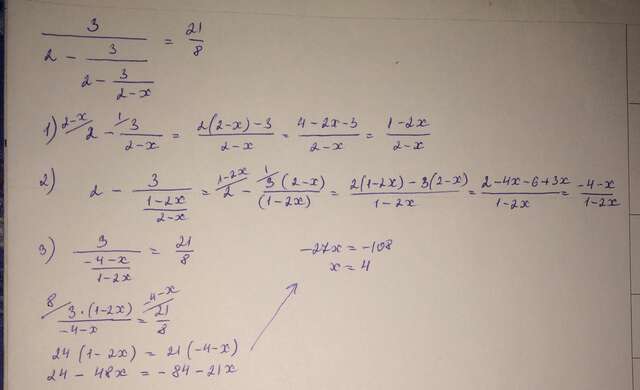 3/(2 - 3/(2 - 3/(2-x))) = 21/8
1) 2-x/ 2 - 1/ 3/(2-x) = (2(2-x)-3)/(2-x) = (4-2x-3)/(2-x) = (1-2x)/(2-x)
2) 2 - 3/((1-2x)/(2-x)) = 1-2x/ 2 - 1/ 3(2-x)/(1-2x) = (2(1-2x)-3(2-x))/(1-2x) = (2-4x-6+3x)/(1-2x) = (-4-x)/(1-2x)
3) 3/((-4-x)/(1-2x)) = 21/8
8/ 3·(1-2x)/(-4-x) = -4-x/ 21/8
24(1-2x) = 21(-4-x)
24 - 48x = -84-21x
-27x = -108
x = 4